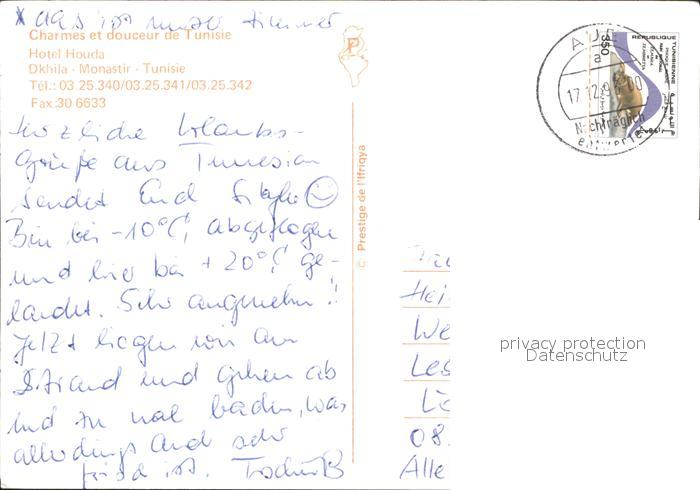 * das ist unser Zimmer
Charmes et douceur de Tunisie
Hotel Houda
Dkhila - Monastir - Tunisie
Tél.: 03.25.340/03.25.341/03.25.342
Fax.30 6633
Herzliche Urlaubs-
grüße aus Tunesien
sendet Euch
Bin bei -10°C abgeflogen
und hier bei +20°C ge-
landet. Sehr angenehm!!
Jetzt liegen wir am
Strand und gehen ab
und zu mal baden, was
allerdings auch sehr
frisch ist. Tschüß
© Prestige de l'Ifriqya
P
REPUBLIQUE TUNISIENNE
350
17.12.
Nachträglich
entwertet
Hei
We
Les
08.
Alle
privacy protection
Datenschutz